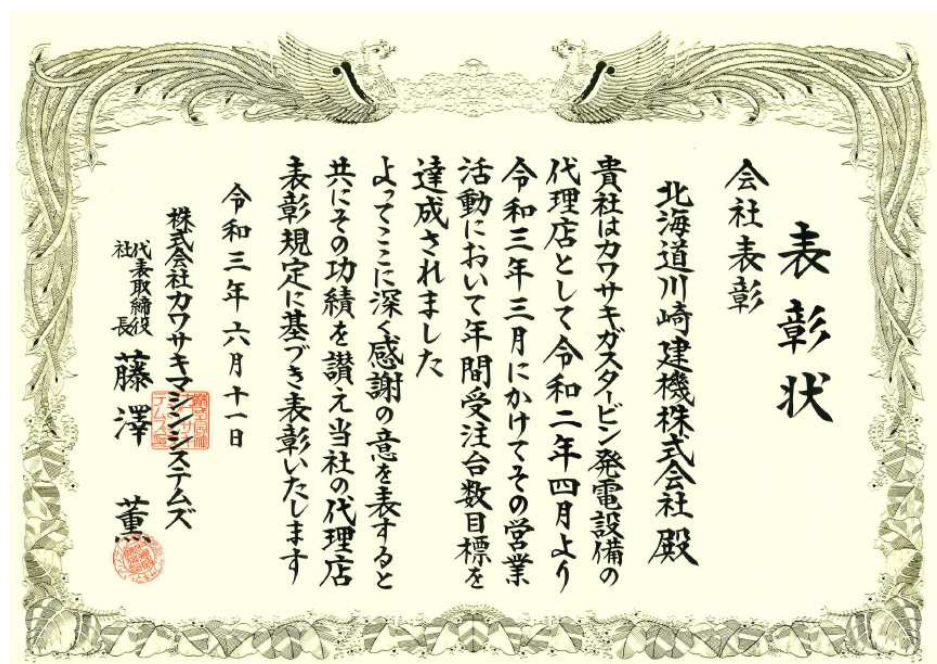 表彰状
会社表彰
北海道川崎建機株式会社 殿
貴社はカワサキガスタービン発電設備の
代理店として令和二年四月より
令和三年三月にかけてその営業
活動において年間受注台数目標を
達成されました
よってここに深く感謝の意を表すると
共にその功績を讃え当社の代理店
表彰規定に基づき表彰いたします
令和三年六月十一日
株式会社カワサキマシンシステムズ
代表取締役
社長
藤澤 薫